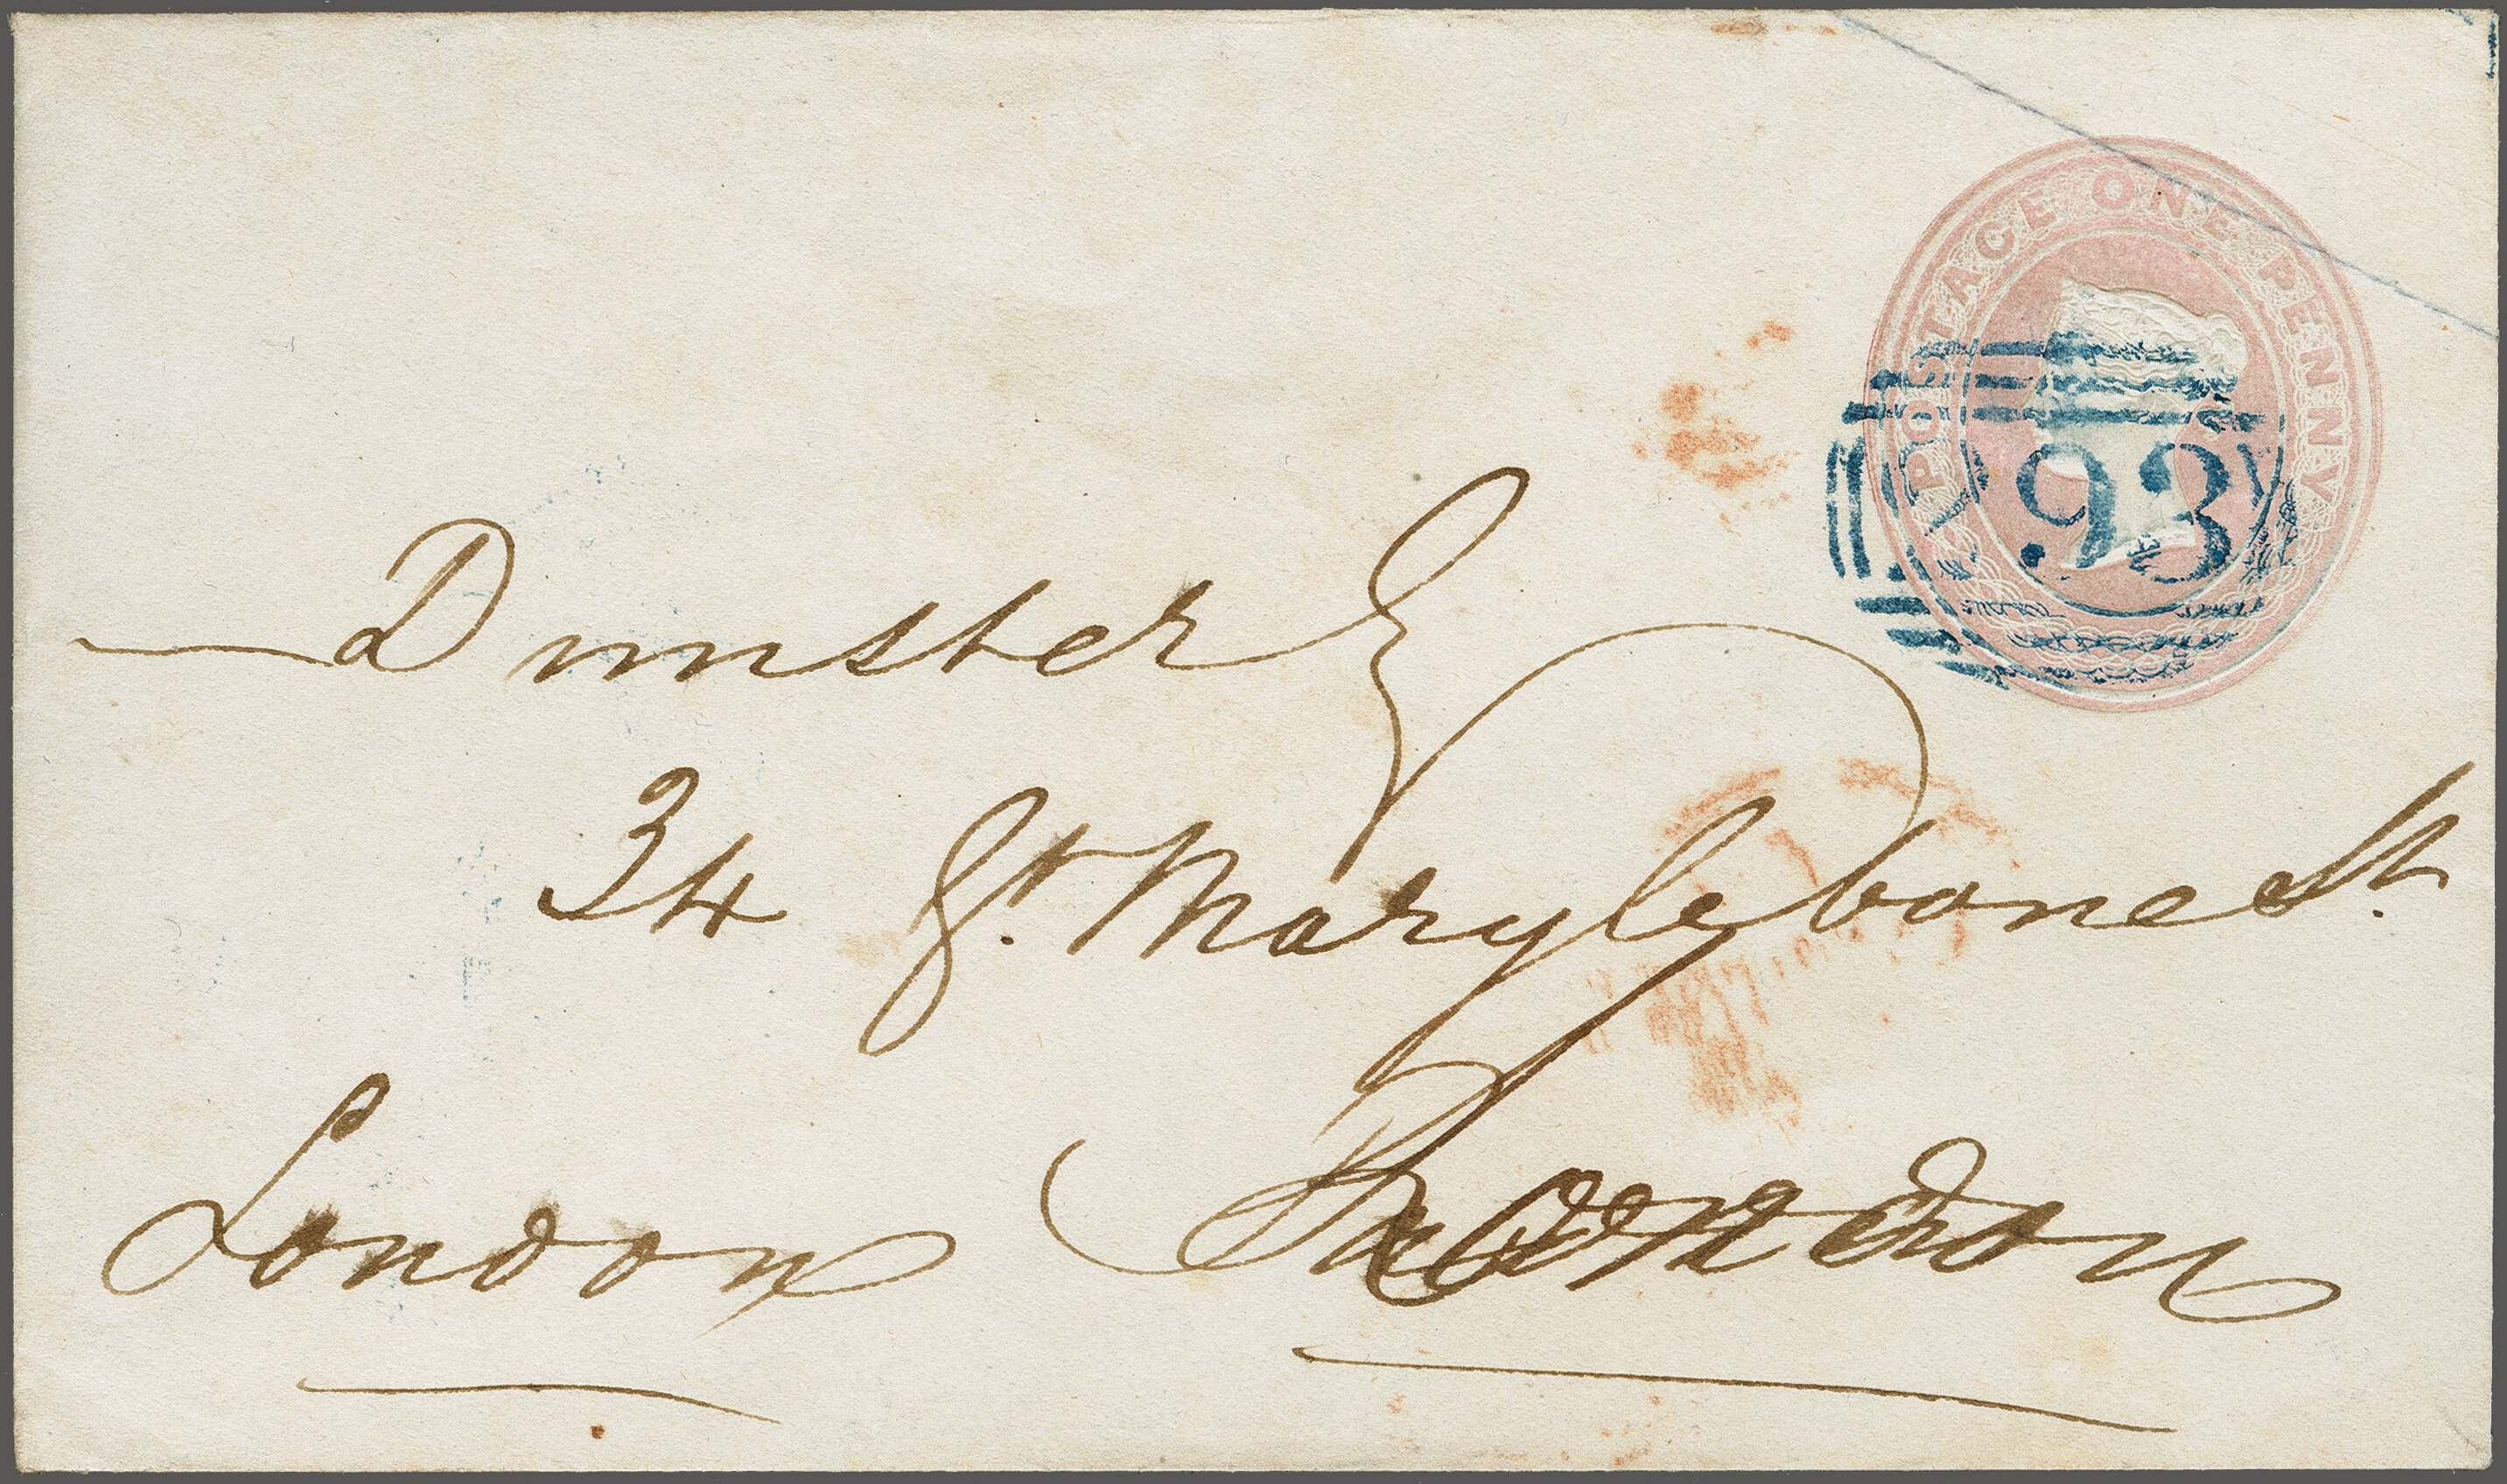 POSTAGE ONE PENNY
93
Dunster
34 Gt. Marylebone St.
London